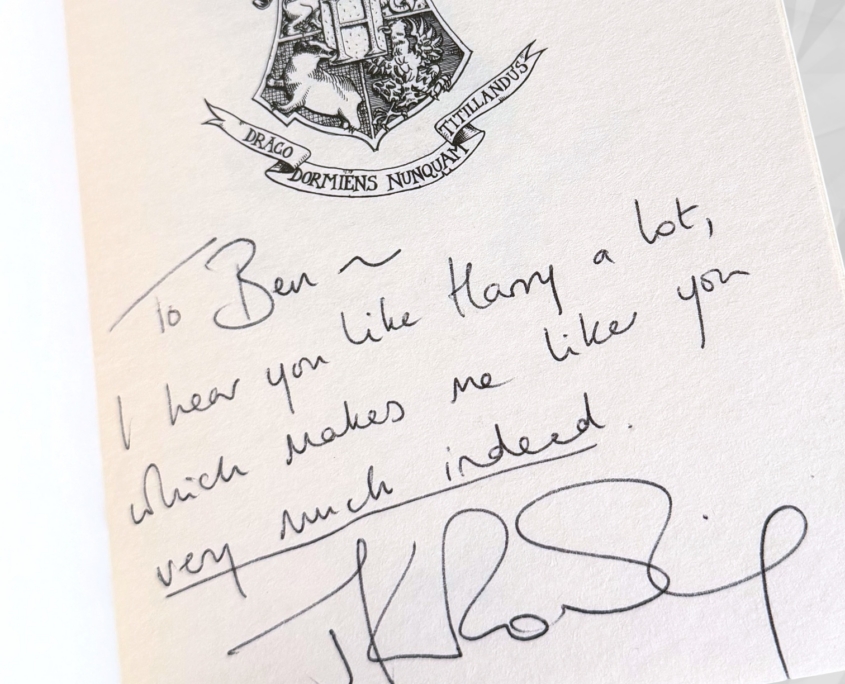 H
DRACO
DORMIENS NUNQUAM
TITILLANDUS
To Ben ~
I hear you like Harry a lot,
which makes me like you
very much indeed.
JK Rowling